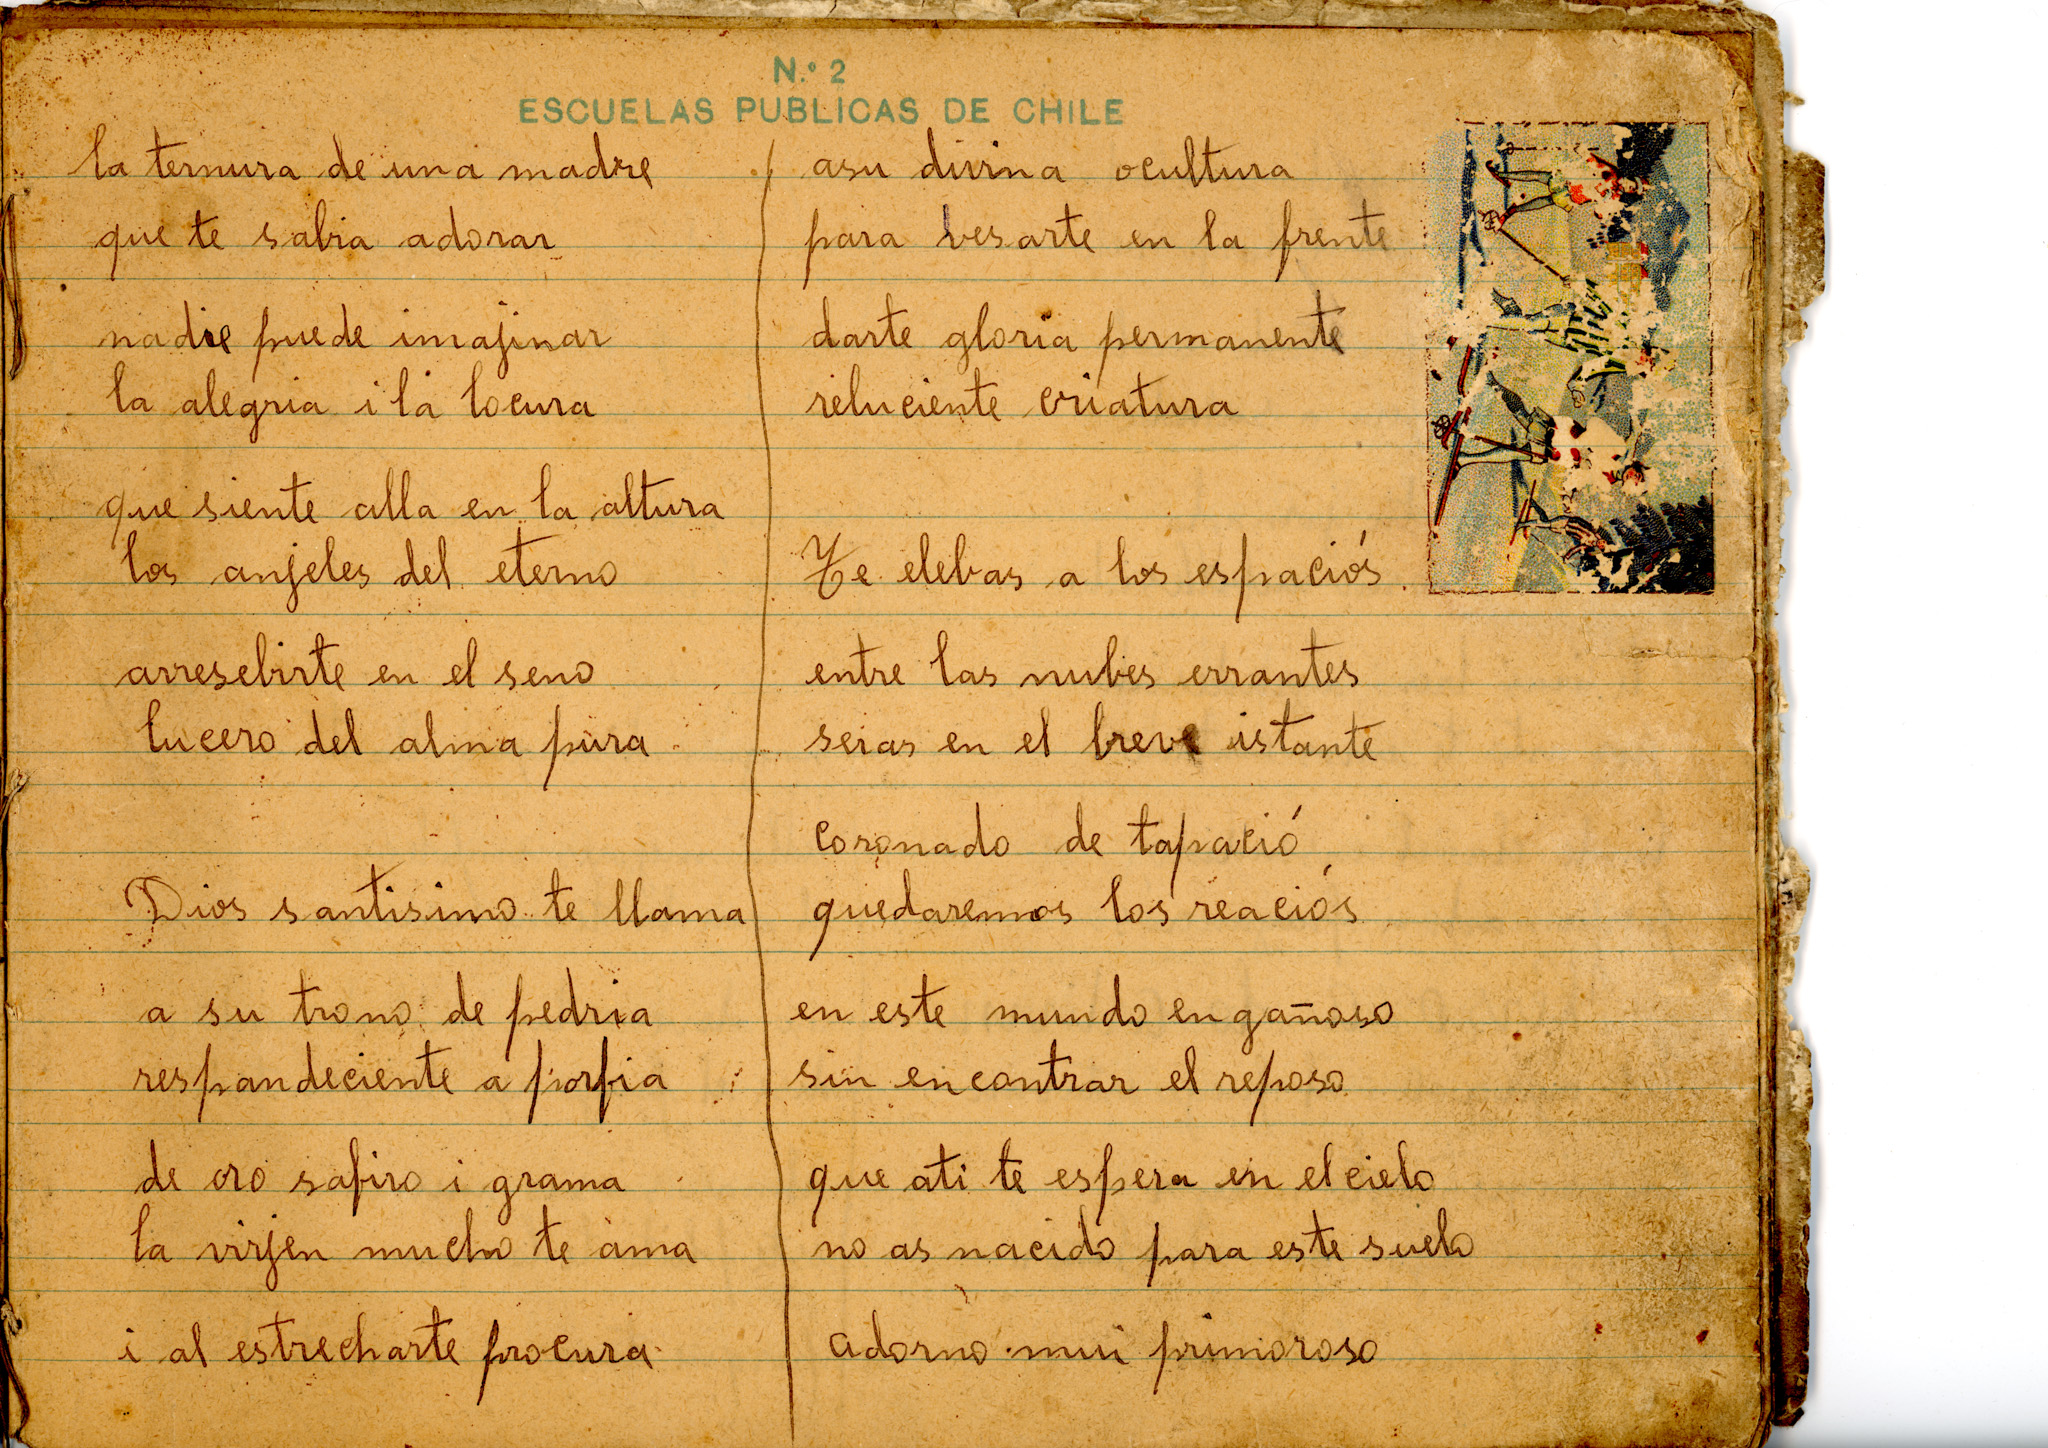 N.º 2
ESCUELAS PUBLICAS DE CHILE
la ternura de una madre
que te sabia adorar
nadie puede imajinar
la alegria i la locura
que siente alla en la altura
los anjeles del eterno
arresebirte en el seno
lucero del alma pura
Dios santisimo te llama
a su trono de pedria
respandeciente a porfia
de oro safiro i grama
la virjen mucho te ama
i al estrecharte procura
asu divina ocultura
para besarte en la frente
darte gloria permanente
reluciente criatura
Te elebas a los espaciós
entre las nubes errantes
seras en el breve istante
coronado de tapació
quedaremos los reaciós
en este mundo engañoso
sin encontrar el reposo
que ati te espera en el cielo
no as nacido para este suelo
adorno mui primoroso